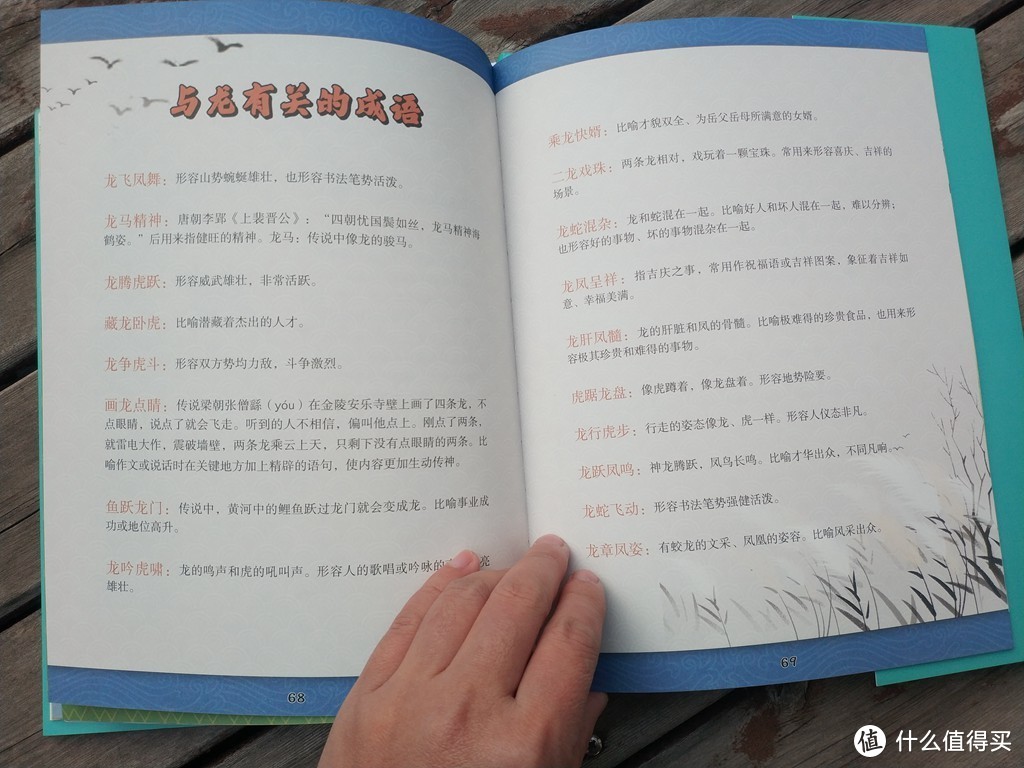 与龙有关的成语
龙飞凤舞：形容山势蜿蜒雄壮，也形容书法笔势活泼。
龙马精神：唐朝李郢《上裴晋公》：“四朝忧国鬓如丝，龙马精神海
鹤姿。”后用来指健旺的精神。龙马：传说中像龙的骏马。
龙腾虎跃：形容威武雄壮，非常活跃。
藏龙卧虎：比喻潜藏着杰出的人才。
龙争虎斗：形容双方势均力敌，斗争激烈。
画龙点睛：传说梁朝张僧繇（yóu）在金陵安乐寺壁上画了四条龙，不
点眼睛，说点了就会飞走。听到的人不相信，偏叫他点上。刚点了两条，
就雷电大作，震破墙壁，两条龙乘云上天，只剩下没有点眼睛的两条。比
喻作文或说话时在关键地方加上精辟的语句，使内容更加生动传神。
鱼跃龙门：传说中，黄河中的鲤鱼跃过龙门就会变成龙。比喻事业成
功或地位高升。
龙吟虎啸：龙的鸣声和虎的吼叫声。形容人的歌唱或吟咏的亮
雄壮。
68
乘龙快婿：比喻才貌双全、为岳父岳母所满意的女婿。
二龙戏珠：两条龙相对，戏玩着一颗宝珠。常用来形容喜庆、吉祥的
场景。
龙蛇混杂：龙和蛇混在一起。比喻好人和坏人混在一起，难以分辨；
也形容好的事物、坏的事物混杂在一起。
龙凤呈祥：指吉庆之事，常用作祝福语或吉祥图案、象征着吉祥如
意、幸福美满。
龙肝凤髓：龙的肝脏和凤的骨髓。比喻极难得的珍贵食品，也用来形
容极其珍贵和难得的事物。
虎踞龙盘：像虎蹲着，像龙盘着。形容地势险要。
龙行虎步：行走的姿态像龙、虎一样。形容人仪态非凡。
龙跃凤鸣：神龙腾跃，凤鸟长鸣。比喻才华出众，不同凡响。
龙蛇飞动：形容书法笔势强健活泼。
龙章凤姿：有蛟龙的文采、凤凰的姿容。比喻风采出众。
69
值 什么值得买